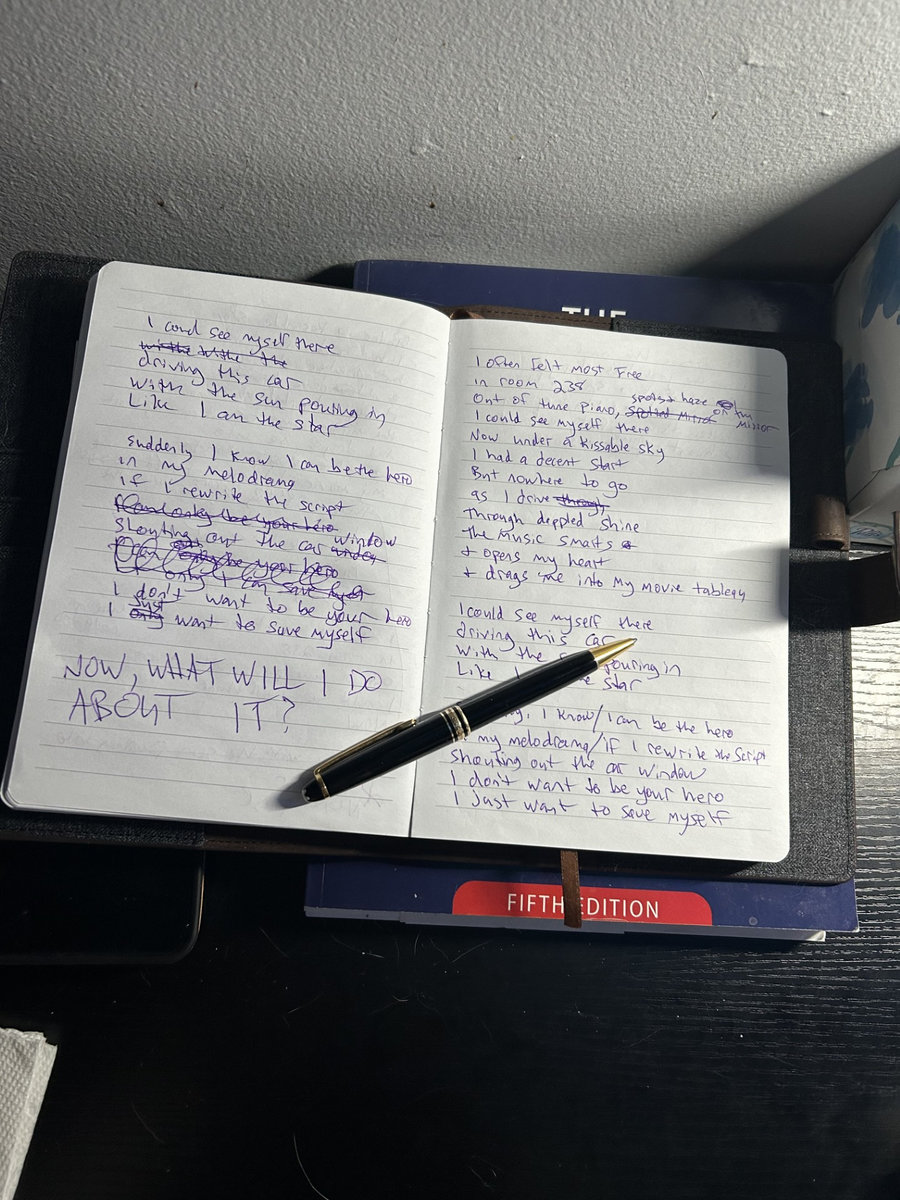 THE
I coud see myself there
driving this car
with the sun pouring in
Like I am the star
suddenly I know I can be the hero
in my melodrama
if I rewrite the script
I can only be your hero
shouting out the car window
I don't want to be your hero
I just want to save myself
NOW, WHAT WILL I DO
ABOUT IT?
I often felt most free
in room 238
spots + haze on my
Out of tune piano, spotted mirror mirror
I could see myself there
Now under a kissable sky
I had a decent start
But nowhere to go
as I drive
Through deppled shine
the music smarts
+ opens my heart
+ drags me into my movie tableau
I could see myself there
driving this car
with the pouring in
Like star
I know/I can be the hero
my melodrama/if I rewrite the script
shouting out the car window
I don't want to be your hero
I just want to save myself
FIFTH EDITION